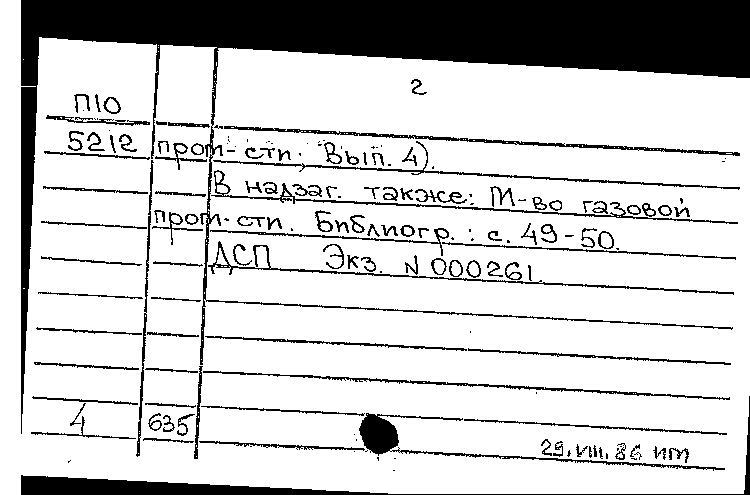 2
П10
5212 пром-сти; Вып. 4).
В надзаг. также: М-во газовой
пром-сти. Библиогр.: с. 49-50.
ДСП Экз. N 000261
4 635
29.VIII.86 ИТ